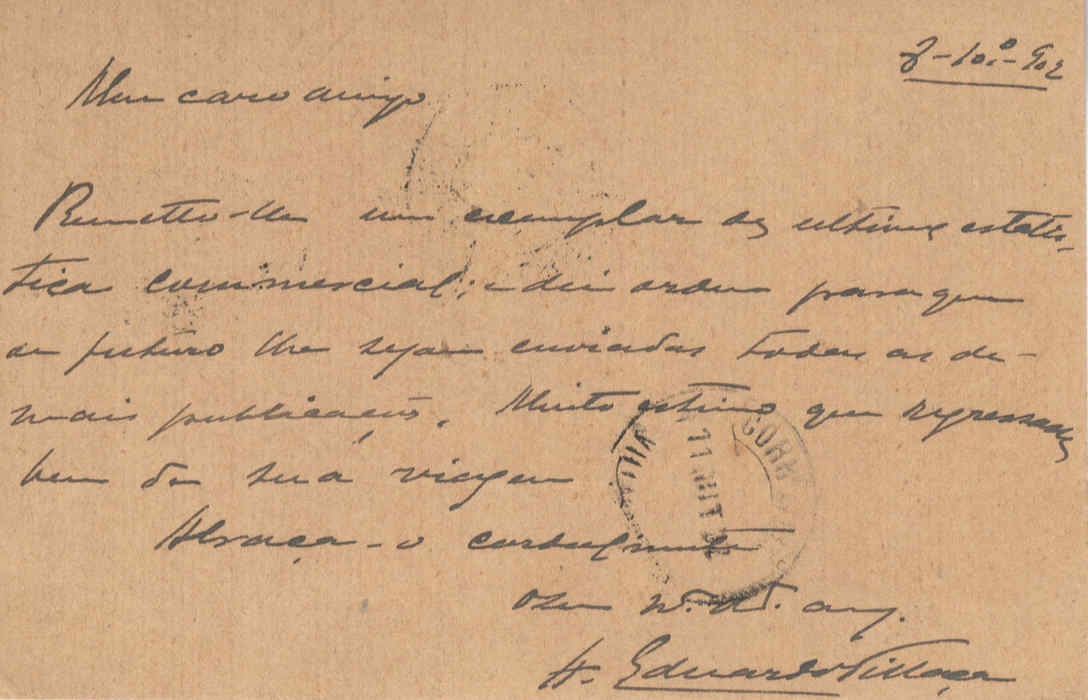 8-10º-902
Meu caro amigo
Remetto-lhe um exemplar da ultima estatis-
tica commercial; e dei ordem para que
de futuro lhe sejam enviadas todas as de-
mais publicações. Muito estimo que regressasse
bem da sua viagem
Abraça-o cordealmente
o seu m. to am.
A. Eduardo Villaça
CORR
11 OUT